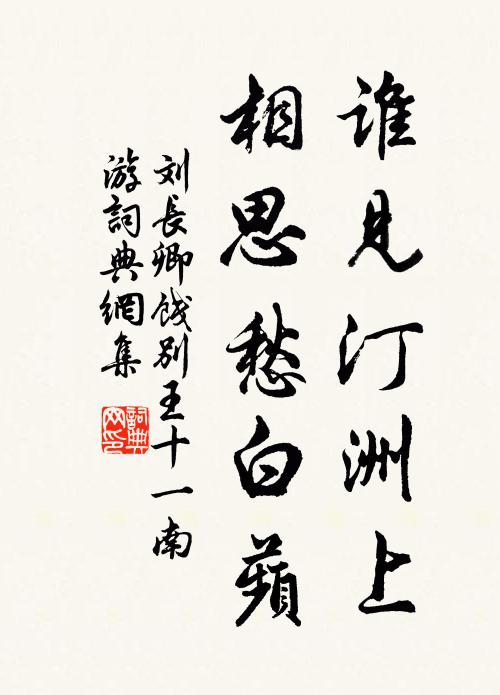 谁见汀洲上
相思愁白蘋
刘長卿餞别王十一南
游詞典網集
詞典网印